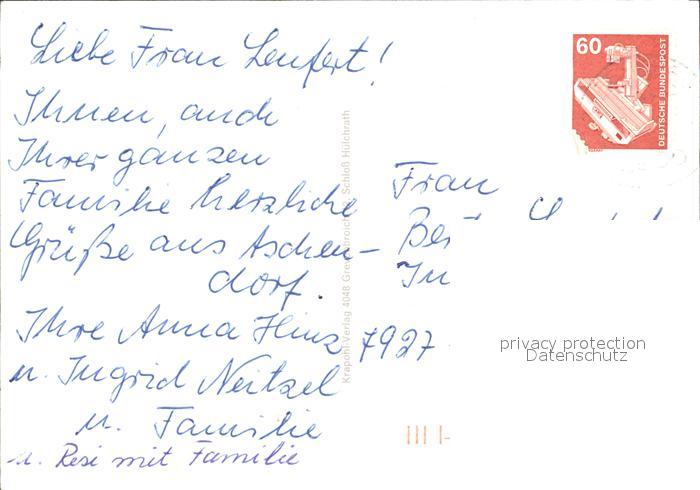 Liebe Frau Lenfert!
Ihnen, auch
Ihrer ganzen
Familie herzliche
Grüße aus Aschen-
dorf.
Ihre Anna Hinz
u. Ingrid Neitzel
u. Familie
u. Resi mit Familie
Krapohl-Verlag 4048 Schloß Hülchrath
60
DEUTSCHE BUNDESPOST
Frau
Be
In
7927
privacy protection
Datenschutz